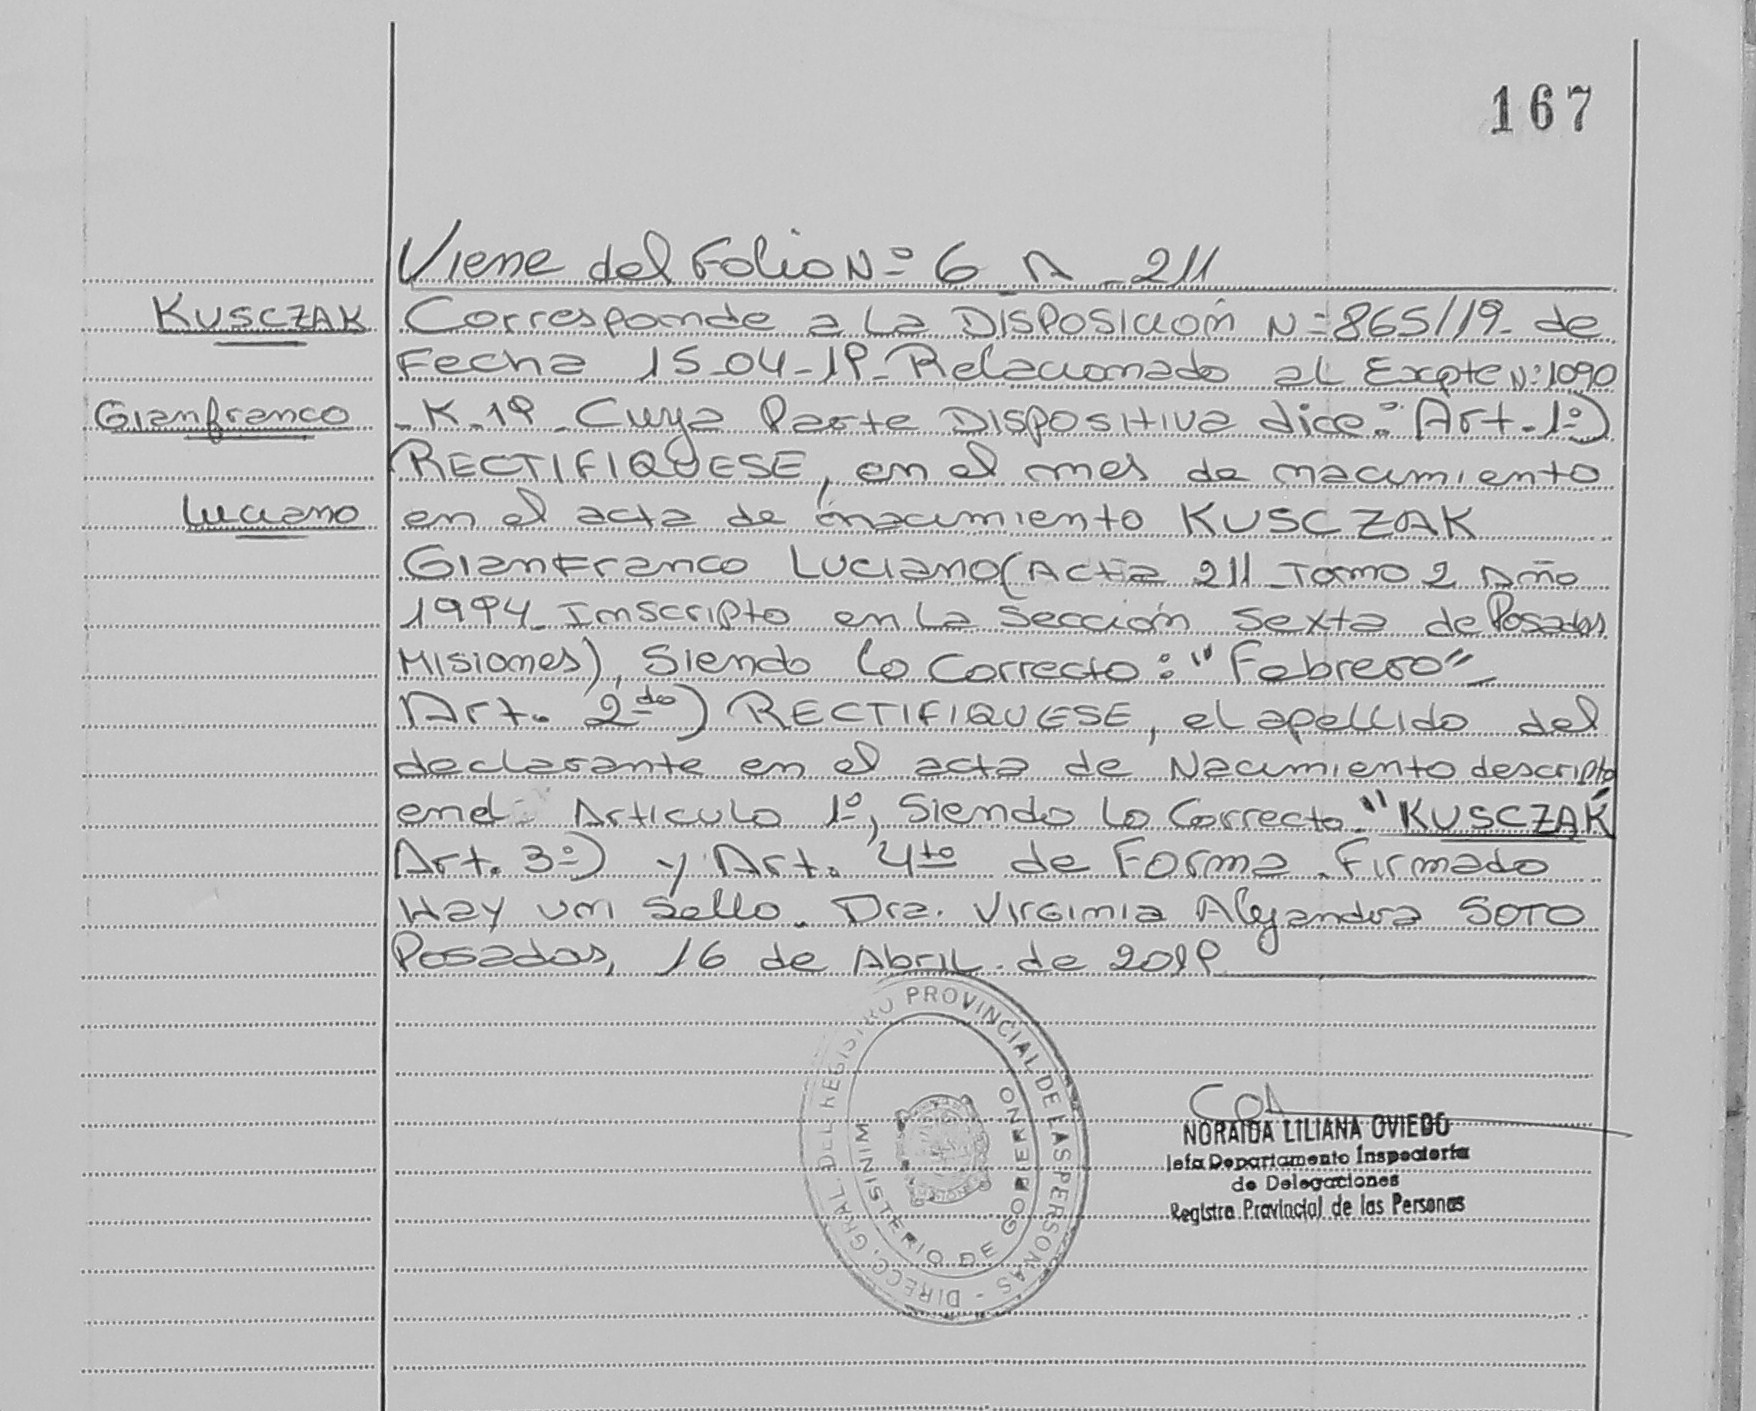 167
Viene del Folio Nº 6 A - 211
KUSCZAK
Corresponde a la DISPOSICIÓN Nº 865/19- de
Fecha 15-04-19- Relacionado al Expte Nº 1090
Gianfranco
-K-19- Cuya Parte DISPOSITIVA dice: Art. 1º)
RECTIFIQUESE, en el mes de nacimiento
Luciano
en el acta de nacimiento KUSCZAK
Gianfranco Luciano (Acta 211 Tomo 2 Año
1994- Inscripto en la Sección Sexta de Posadas
Misiones), Siendo lo Correcto: "Febrero"-
Art. 2do) RECTIFIQUESE, el apellido del
declarante en el acta de Nacimiento descripto
en el Articulo 1º, Siendo lo Correcto "KUSCZAK"
Art. 3º) y Art. 4to de Forma. Firmado
Hay un Sello. Dra. Virginia Alejandra SOTO
Posadas, 16 de Abril de 2019
DIRECC. GRAL. DEL REGISTRO PROVINCIAL DE LAS PERSONAS -
MINISTERIO DE GOBIERNO
NORAIDA LILIANA OVIEDO
Jefa Departamento Inspectoría
de Delegaciones
Registro Provincial de las Personas